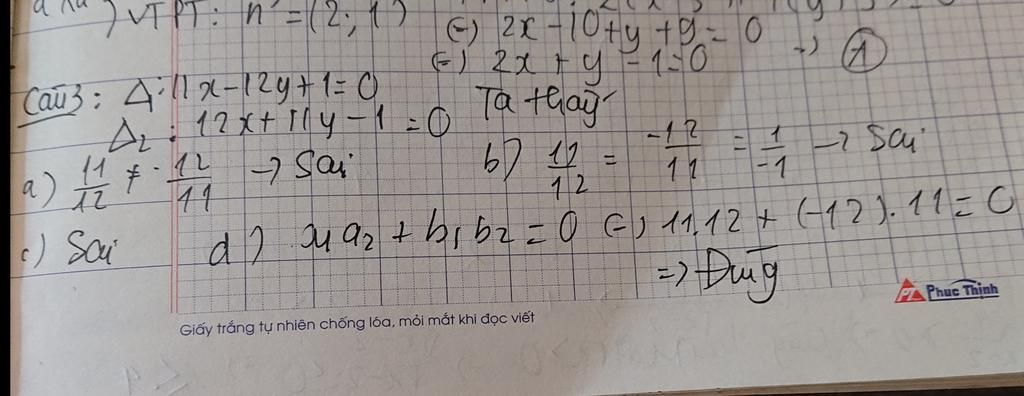 VTPT: n = (2; 1) (=) 2x - 10 + y + 9 = 0
(=) 2x + y - 1 = 0 → A
Câu 3: Δ₁: 11x - 12y + 1 = 0 Ta thấy
Δ₂: 12x + 11y - 1 = 0
a) 11/12 ≠ -12/11 → Sai b) 12/12 = -12/11 = 1/-1 → Sai
c) Sai d) a₁a₂ + b₁b₂ = 0 (=) 11.12 + (-12).11 = 0
=> Đúng
Phuc Thinh
Giấy trắng tự nhiên chống lóa, mỏi mắt khi đọc viết